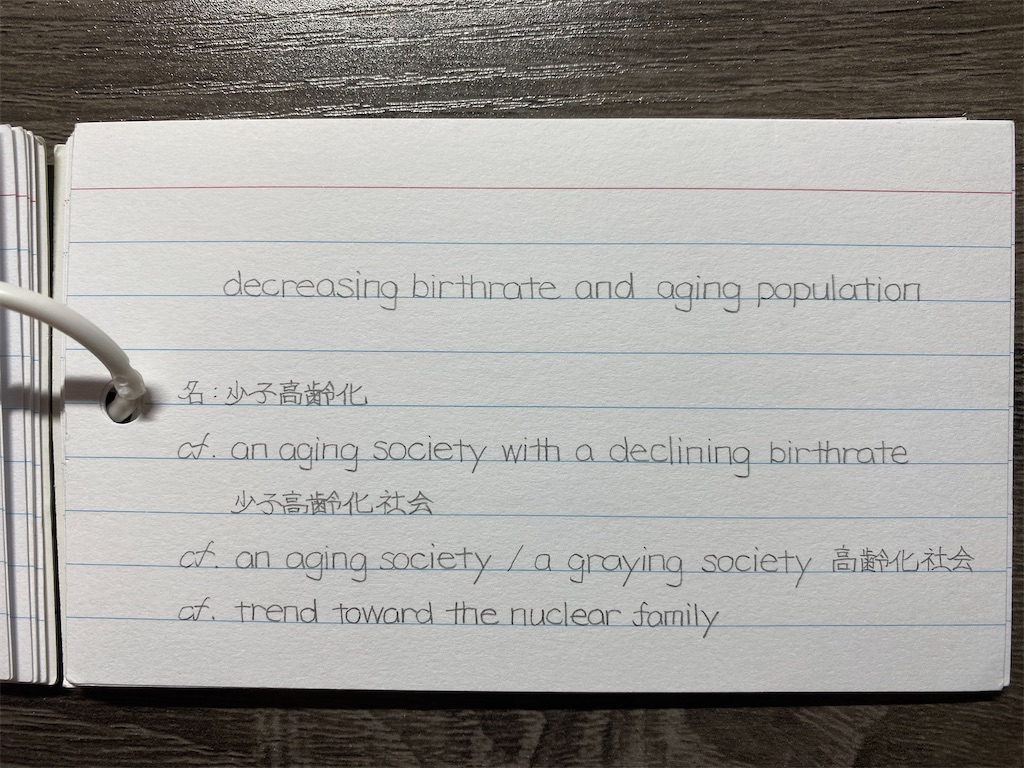 decreasing birthrate and aging population
名:少子高齢化
cf. an aging society with a declining birthrate
少子高齢化社会
cf. an aging society / a graying society 高齢化社会
cf. trend toward the nuclear family